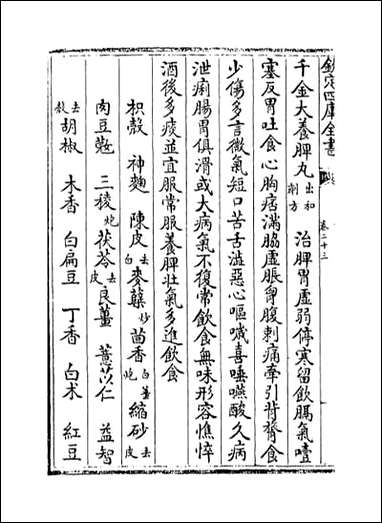 欽定四庫全書 卷二十三
千金大養脾丸 出和劑方 治脾胃虛弱停寒留飲膈氣噎
塞反胃吐食心胸痞滿脇虛脹胷腹刺痛牽引背膂食
少傷多言微氣短口苦舌澁惡心嘔噦喜唾嚥酸久病
泄痢腸胃俱滑或大病氣不復常飲食無味形容憔悴
酒後多痰並宜服常服養脾壯氣多進飲食
枳殻 神麯 陳皮去白 麥蘖炒 茴香 白薑炮 縮砂去皮
肉豆蔻 三稜炮 茯苓去皮 良薑 薏苡仁 益智
去殻 胡椒 木香 白扁豆 丁香 白术 紅豆